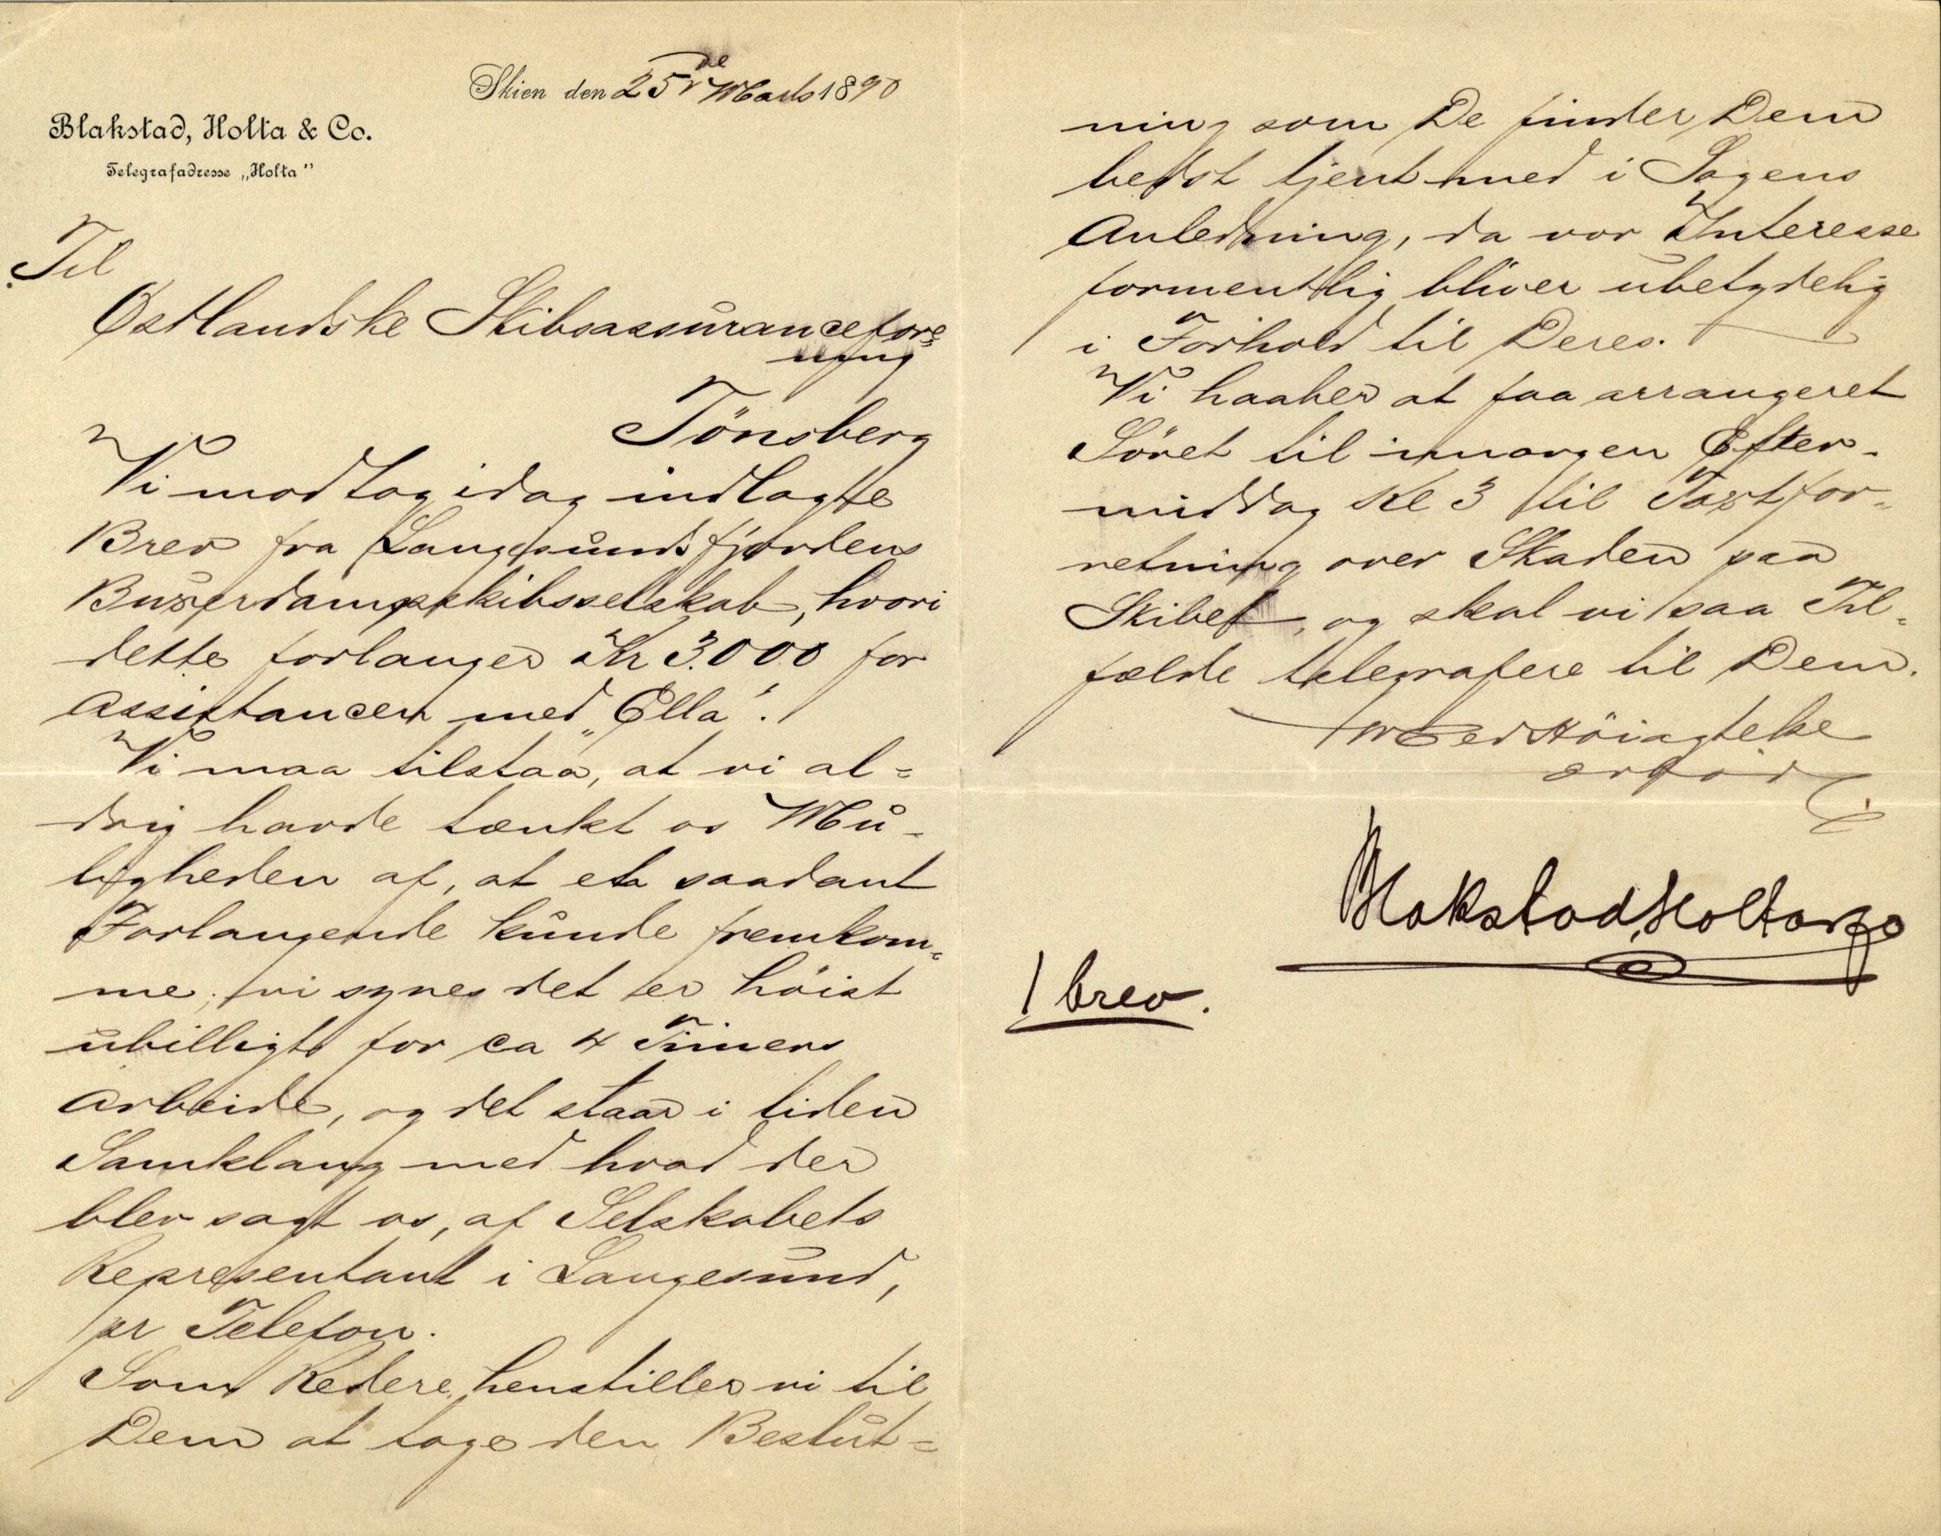 Skien den 25de Marts 1890
Blakstad, Holta & Co.
Telegrafadresse „Holta"
Til
Østlandske Skibsassurancefore=
ning
Tönsberg
Vi modtog idag indlagte
Brev fra Langesundsfjordens
Buxerdampskibsselskab, hvori
dette forlanger Kr 3.000 for
Assistancen med „Ella".
Vi maa tilstaa, at vi al=
drig havde tænkt os Mu-
ligheden af, at et saadant
Forlangende kunde fremkom=
me, vi synes det er höist
ubilligt for ca 4 Timers
Arbeide, og det staar i liden
Samklang med hvad der
blev sagt os, af Selskabets
Representant i Langesund,
pr Telefon.
Som Redere henstiller vi til
Dem at tage den Beslut=
ning som De finder Dem
bedst tjent med i Sagens
Anledning, da vor Interesse
formentlig bliver ubetydelig
i Forhold til Deres.
Vi haaber at faa arrangeret
Söret til imorgen Efter-
middag Kl 3 til Taxtfor=
retning over Skaden paa
Skibet, og skal vi saa Til-
fælde telegrafere til Dem.
Med Höiagtelse
ærbör
Blakstad, Holta & Co
1 brev.